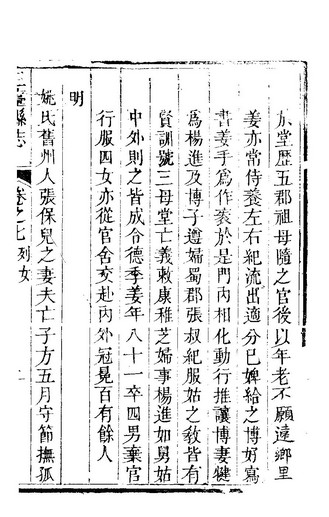 於堂歷五郡祖母隨之官後以年老不願遠鄉里
姜亦常侍養左右紀流出適分巳婢給之博好寫
書姜手爲作袠於是門內相化動行推讓博妻犍
爲楊進及博子遵婦蜀郡張叔紀服姑之敎皆有
賢訓號三母堂亡義敕康稚芝婦事楊進如舅姑
中外則之皆成令德季姜年八十一卒四男棄官
行服四女亦從官舍交赴內外冠冕百有餘人
明
姚氏舊州人張保兒之妻夫亡子方五月守節撫孤
三臺縣志
卷之七 列女